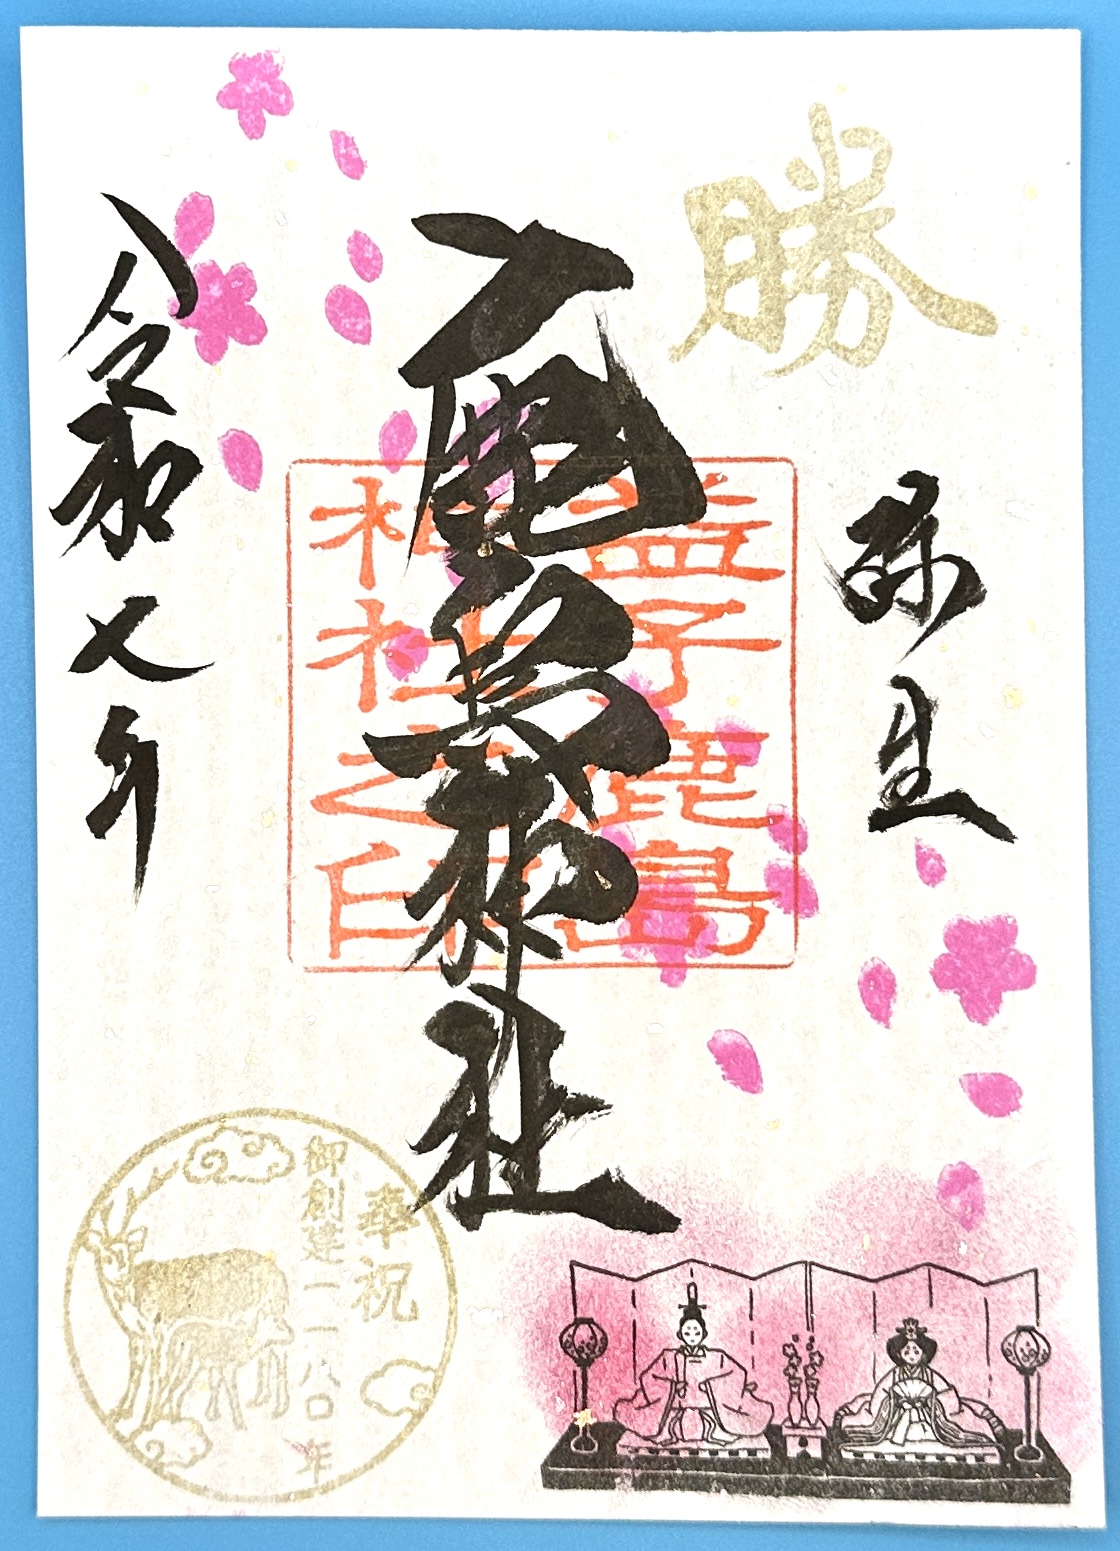 勝
弥生
鹿島神社
益子鹿島
神社之印
令和七年
奉祝
御創建一一八〇年